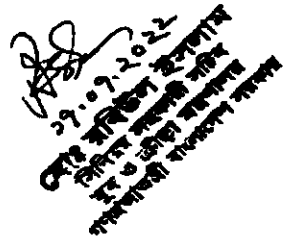 ২৭.০৭.২০২২
মোঃ রবিউল ইসলাম
সিনিয়র সহকারী সচিব
যুব ও ক্রীড়া মন্ত্রণালয়
গণপ্রজাতন্ত্রী বাংলাদেশ সরকার